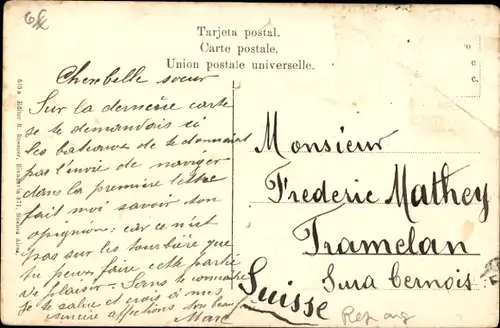 6£
Tarjeta postal.
Carte postale.
Union postale universelle.
Cher belle soeur
Sur la dernière carte
je te demandais si
les bateaux de te donnait
pas l'envie de naviger
dans la première lettre
fait moi savoir ton
opignion. car ce n'est
pas sur les tourbière que
tu peux faire cette partie
de plaisir. Sans te connaître
je te salue et crois à mes
sincère affections ton beau frère
Marc
Monsieur
Frederic Mathey
Tramelan
Jura bernois
Suisse
Rep arg
Editor R. Rosauer, Rivadavia 571, Buenos Aires.